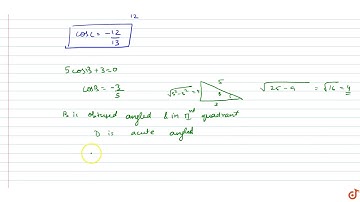 12
cosC = -12/13
5cosB+3=0
cosB = -3/5
√5²-3² = 4
5
3
√25-9 = √16 = 4
B is obtused angled & in IInd quadrant
D is acute angled